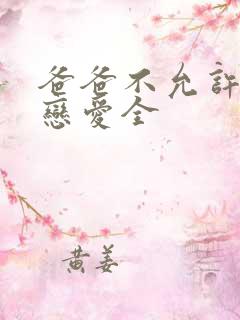 爸爸不允許
戀愛全
黄姜